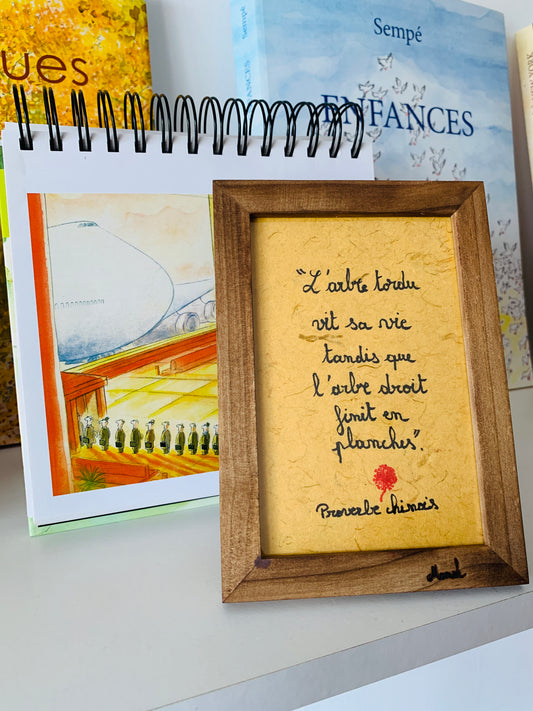 ues
Sempé
ENFANCES
"L'arbre tordu
vit sa vie
tandis que
l'arbre droit
finit en
planches".
Proverbe chinois